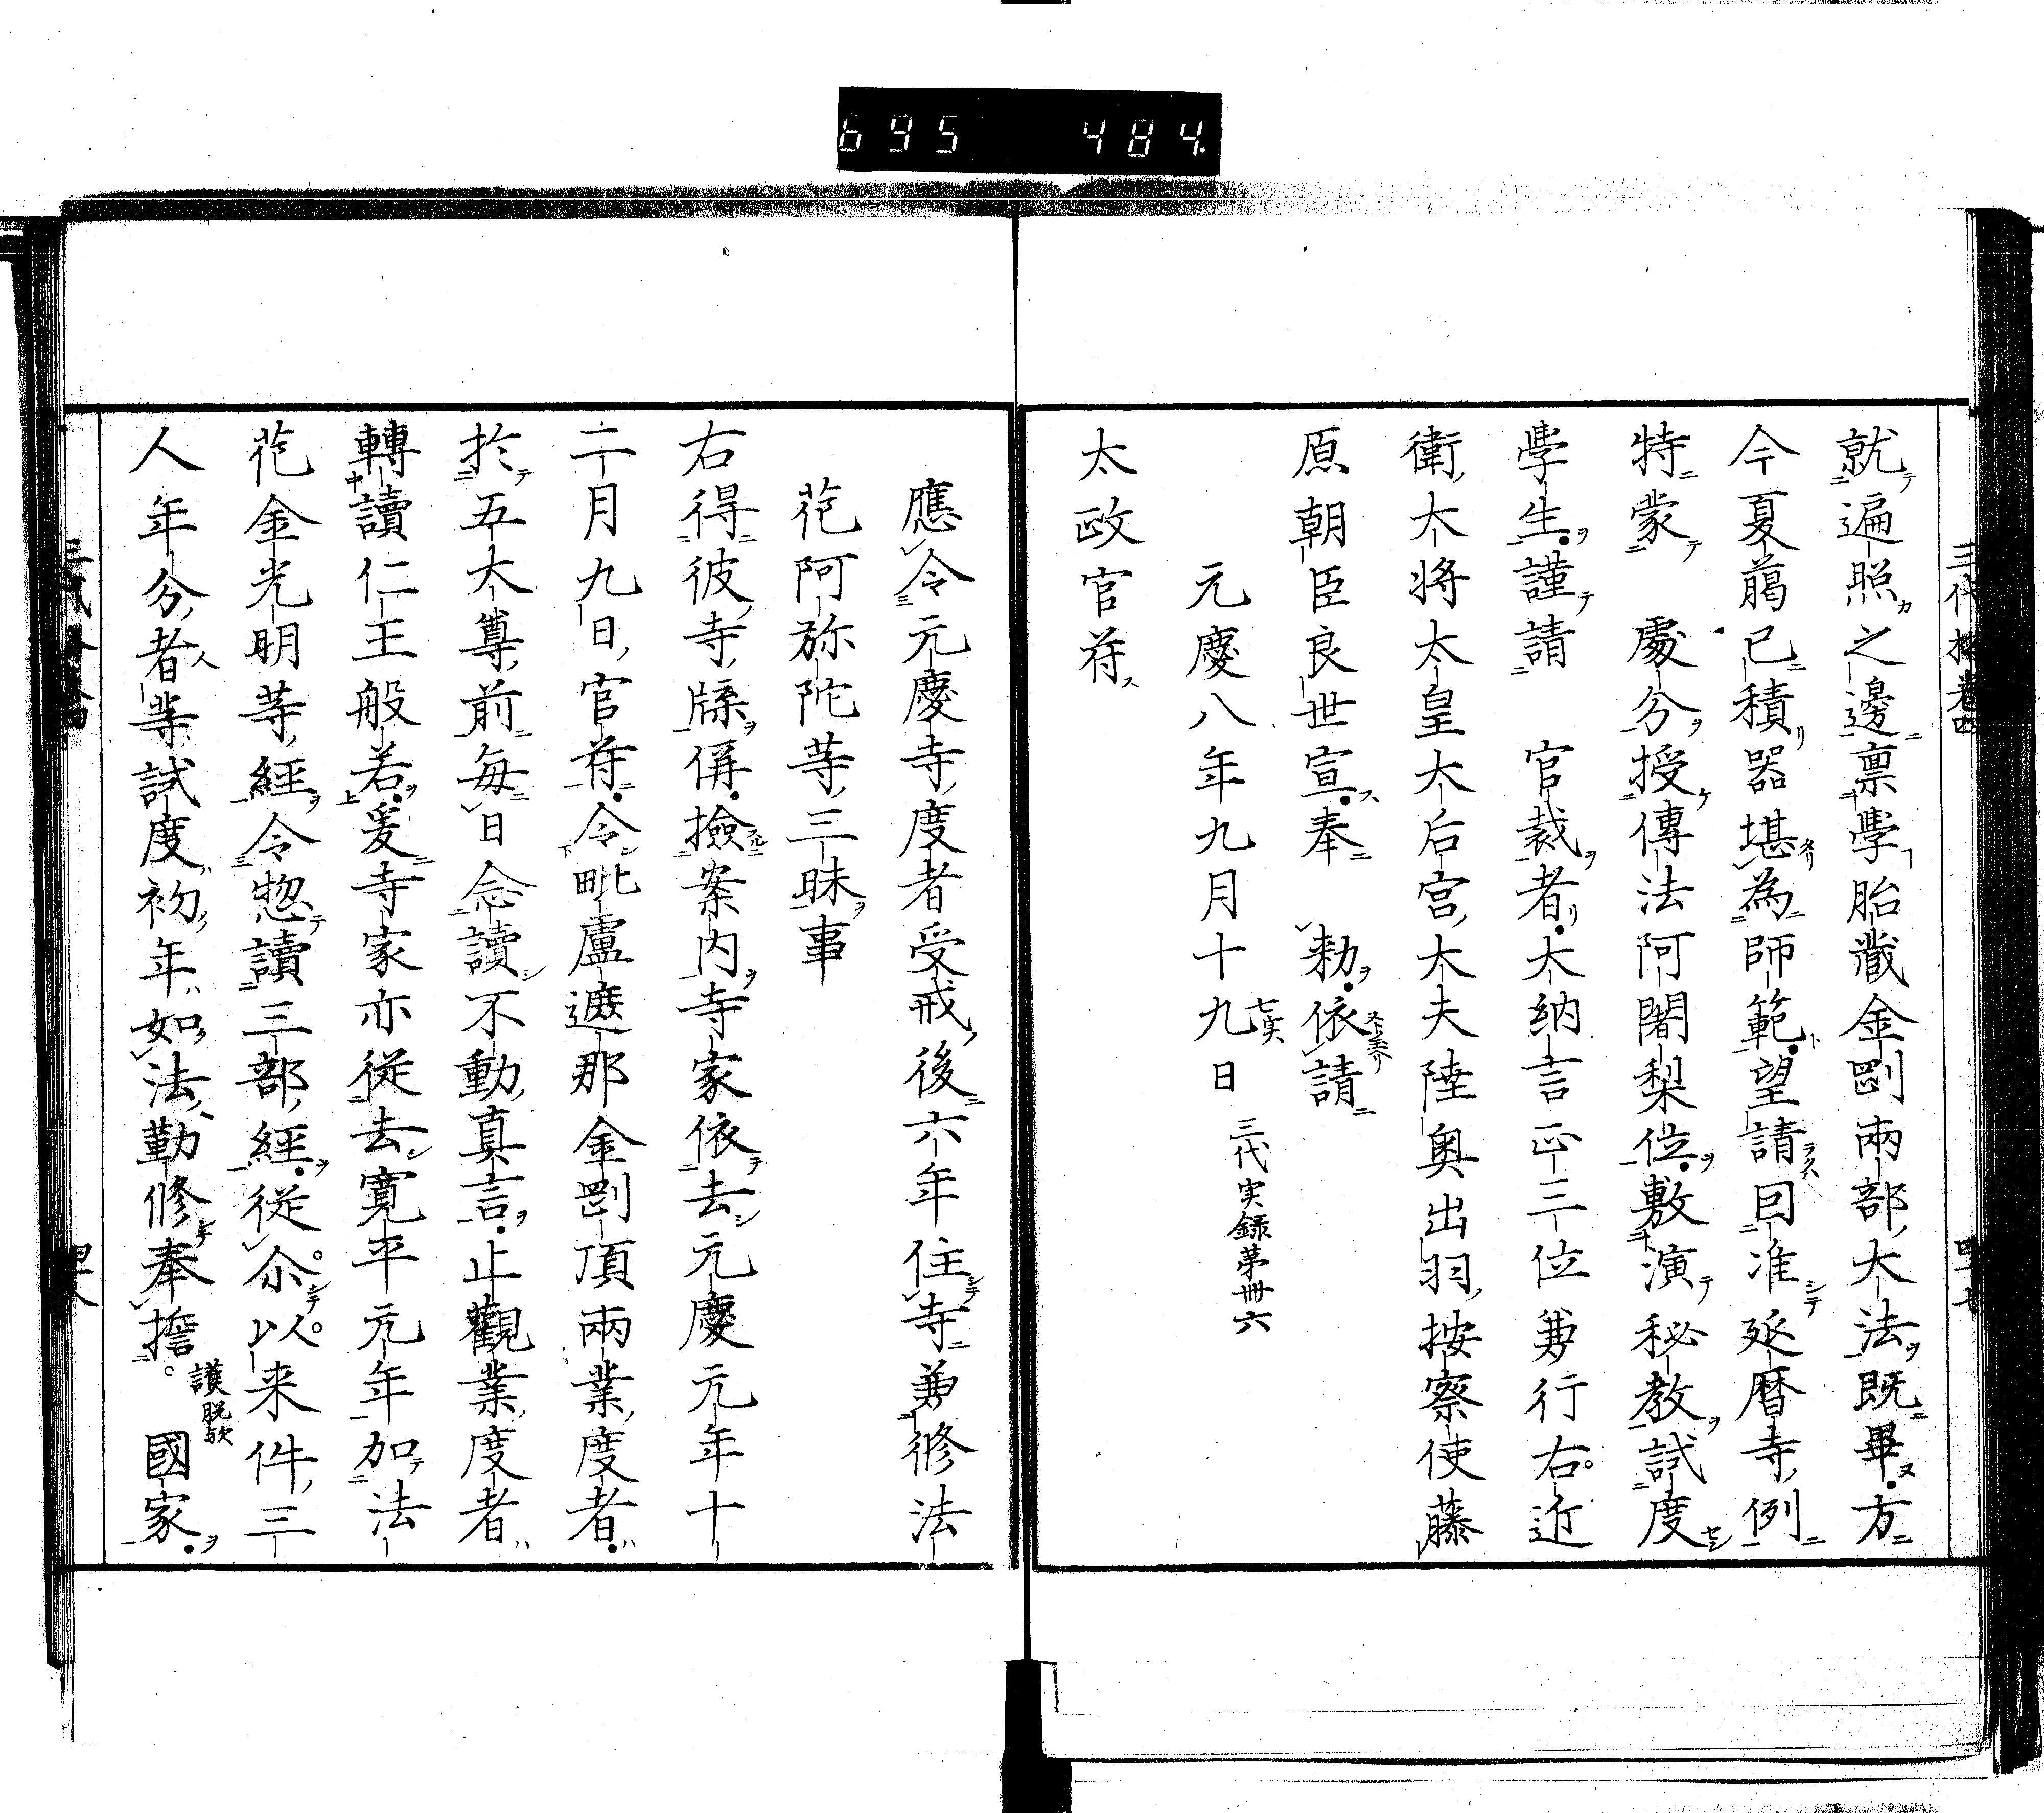 695 484
三代格卷四
就遍照之邊禀學胎藏金剛兩部大法既畢方
今夏﨟已積器堪為師範望請因准延暦寺例
特蒙 處分授傳法阿闍梨位敷演秘教試度
學生謹請 官裁者大納言正三位兼行右近
衛大将太皇大后宮大夫陸奥出羽按察使藤
原朝臣良世宣奉 勅依請
元慶八年九月十九日 三代実録第卅六
太政官符
應令元慶寺度者受戒後六年住寺兼修法
花阿弥陀等三昧事
右得彼寺牒偁撿案内寺家依去元慶元年十
二月九日官符令毗盧遮那金剛頂兩業度者
於五大尊前毎日念讀不動真言止觀業度者
轉讀仁王般若爰寺家亦従去寛平元年加法
花金光明等經令惣讀三部經従尒以来件三
人年分者等試度初年如法勤修奉擔 國家
護脱歟